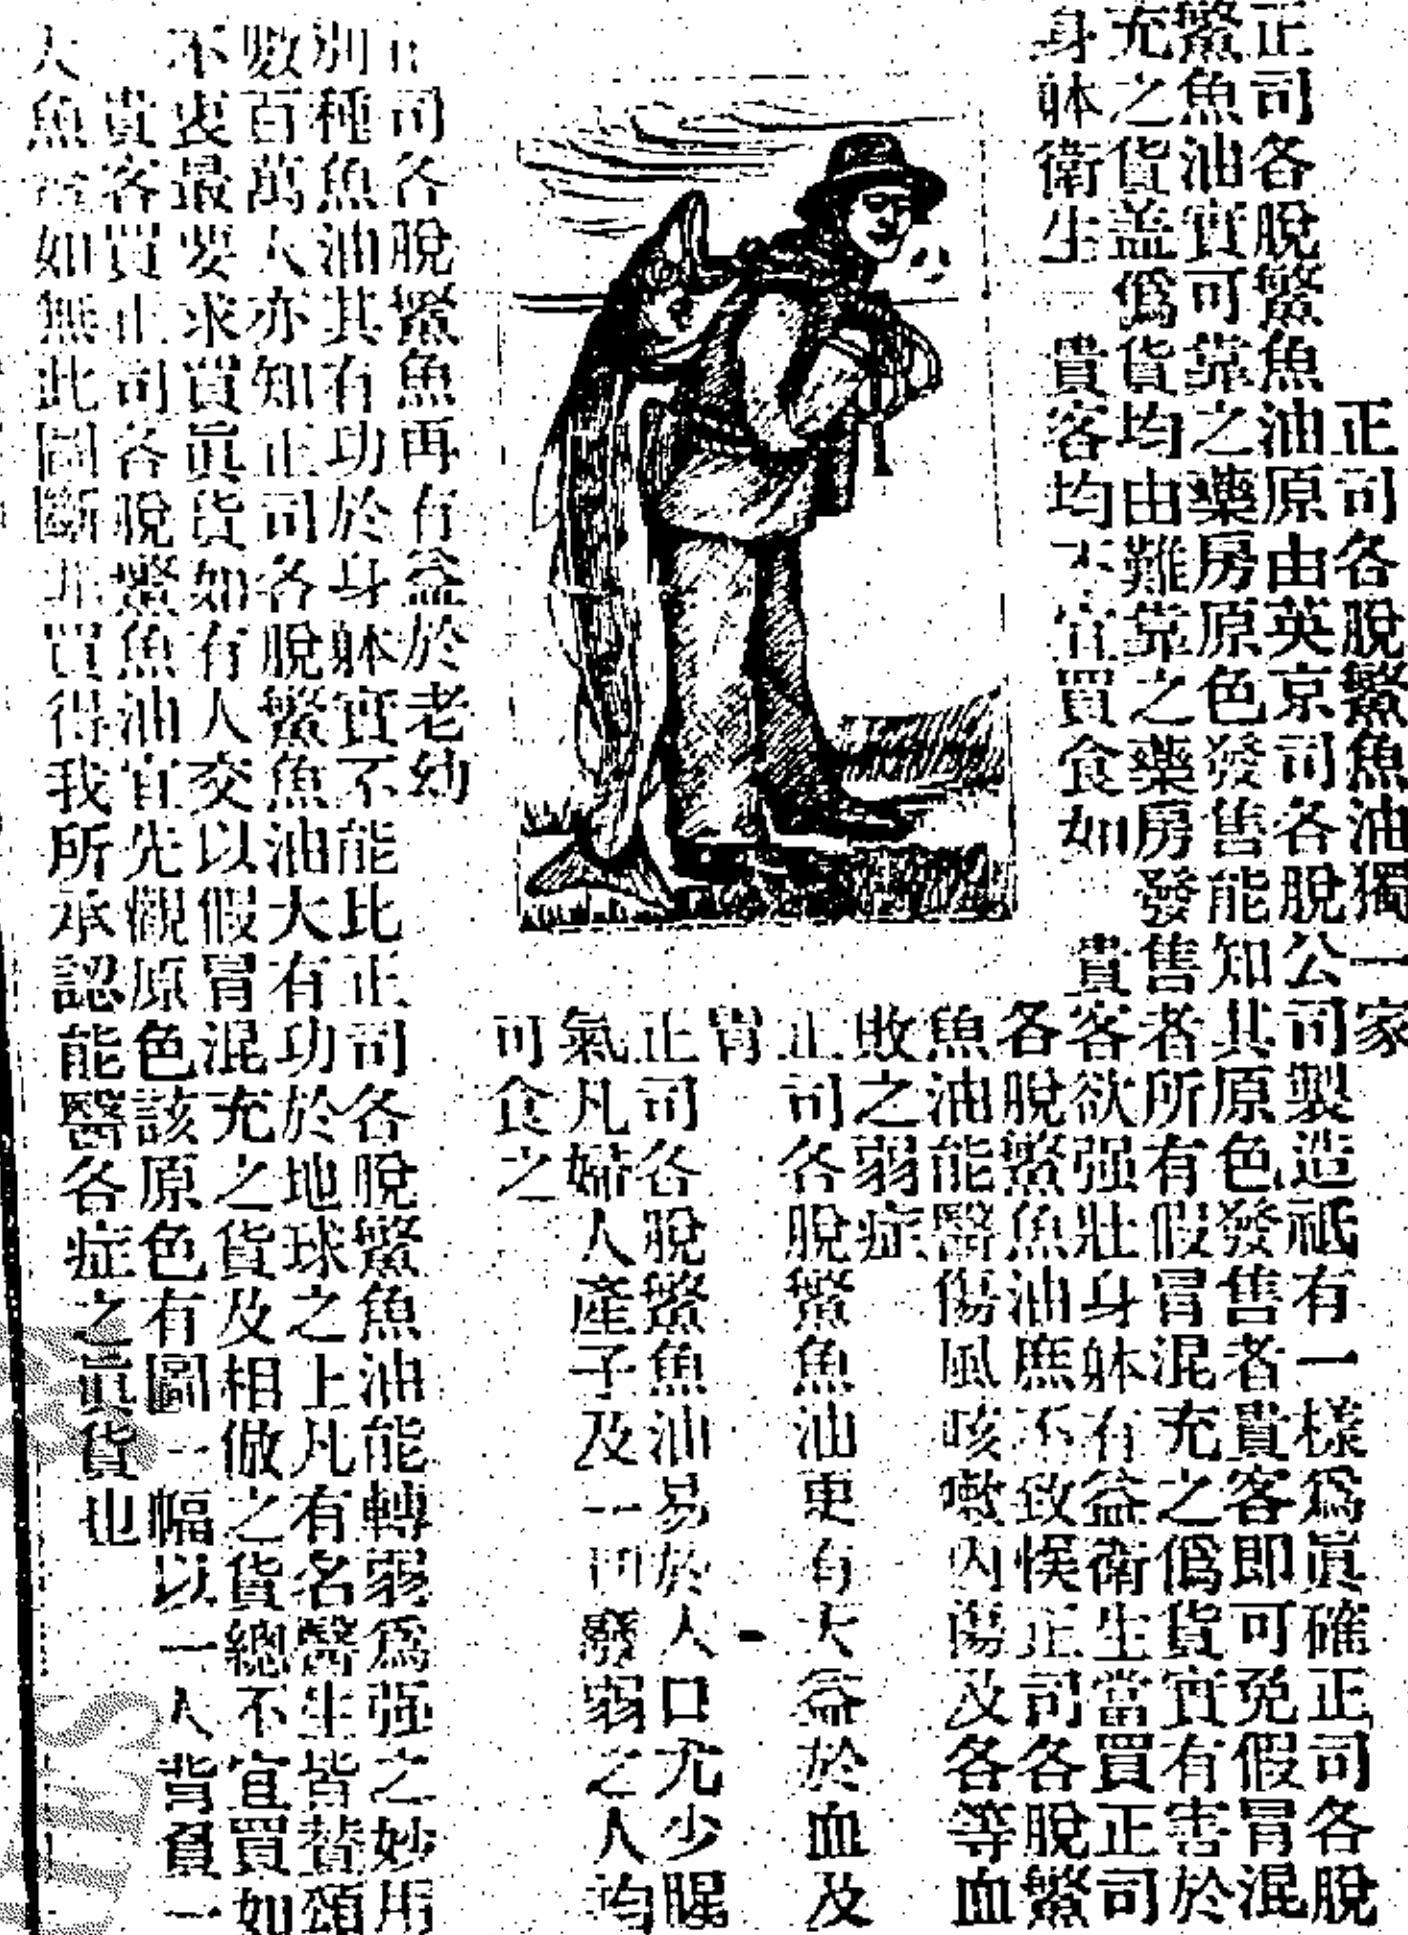 正司各脫鰵魚油獨一家
正司各脫鰵魚油原由英京司各脫公司製造祗有一樣爲眞確正司各脫
鰵魚油實可靠之藥房原色發售能知其原色發售者貴客即可免假冒混
充之貨盖僞貨均由難靠之藥房發售者所有假冒混充之僞貨實有害於
身躰衛生 貴客均不宜買食如 貴客欲强壯身躰有益衛生當買正司
各脫鰵魚油庶不致悞正司各脫鰵
魚油能醫傷風咳嗽內傷及各等血
敗之弱症
正司各脫鰵魚油更有大益於血及
胃
正司各脫鰵魚油易於人口尤少腥
氣凡婦人產子及一切癆弱之人均
可食之
正司各脫鰵魚再有益於老幼
別種魚油其有功於身躰實不能比正司各脫鰵魚油能轉弱爲强之妙用
數百萬人亦知正司各脫鰵魚油大有功於地球之上凡有名醫生皆贊頌
不衰最要求買眞貨如有人交以假冒混充之貨及相倣之貨總不宜買如
貴客買正司各脫鰵魚油宜先觀原色該原色有圖一幅以一人背負一
大魚 如無此圖斷非買得我所承認能醫各症之眞貨也